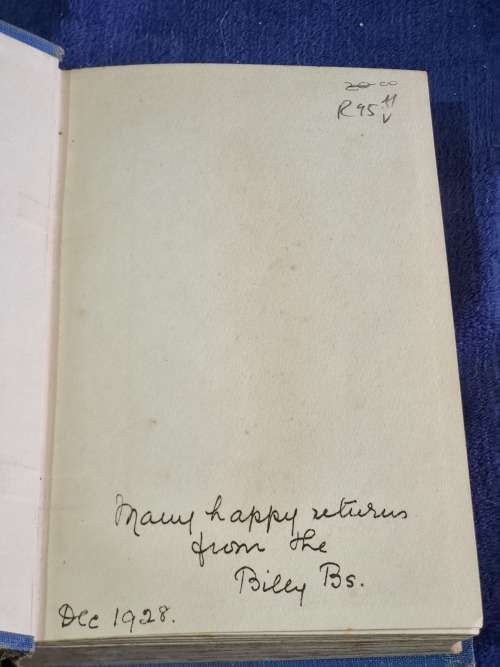 20-00
R95
Many happy returns
from the
Billy Bs.
Dec 1928.